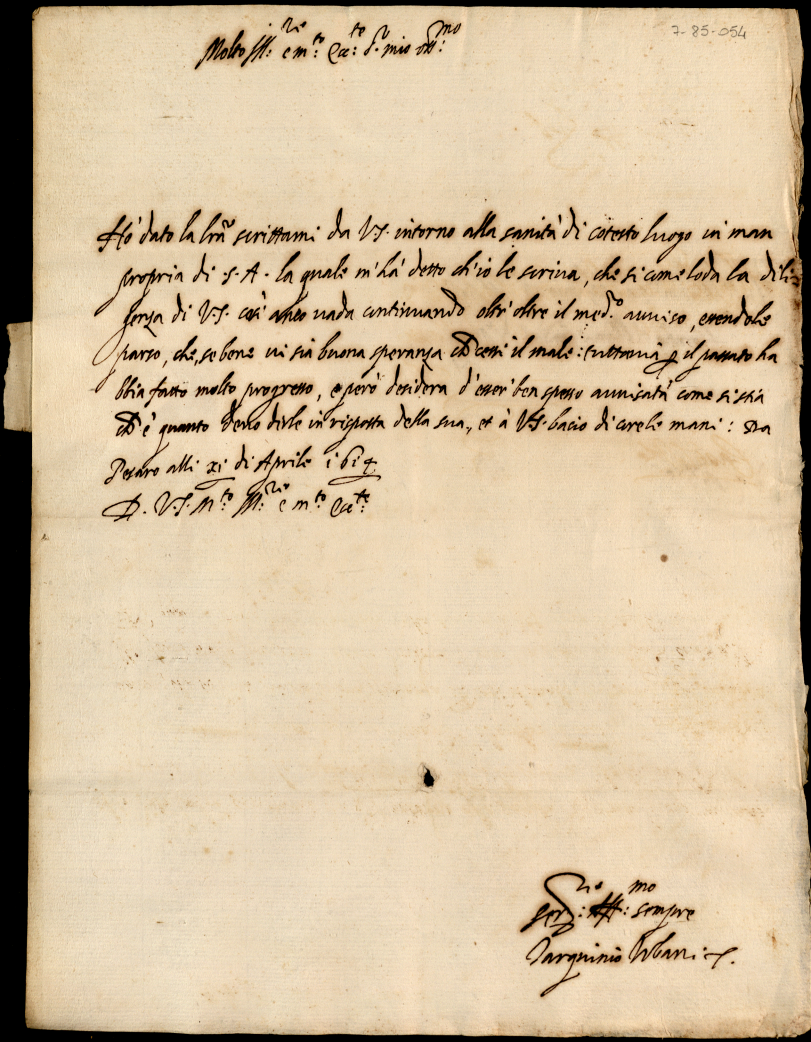 7-85-054
Molto Ill:re e m:to Ecc:te S.r mio oss:mo
Hò dato la lrã scrittami da VS. intorno alla sanità di cotesto luogo in man
propria di S.A. la quale m'hà detto ch'io le scriva, che si come loda la dili=
genza di VS. così anco vada continuando oltr' oltre il med.o avviso, essendole
parso, che, se bene vi sia buona speranza ch cessi il male: tuttavia p il passato ha
bbia fatto molto progresso, e però desidera d'esser ben spesso avvisata come si stia
ch è quanto devo dirle in risposta della sua, et à VS. bacio di core le mani: Da
Pesaro alli xi di Aprile
D. V.S. M:to Ill:re e m:to Ecc:te
Ser:re :mo sempre
Tarquinio